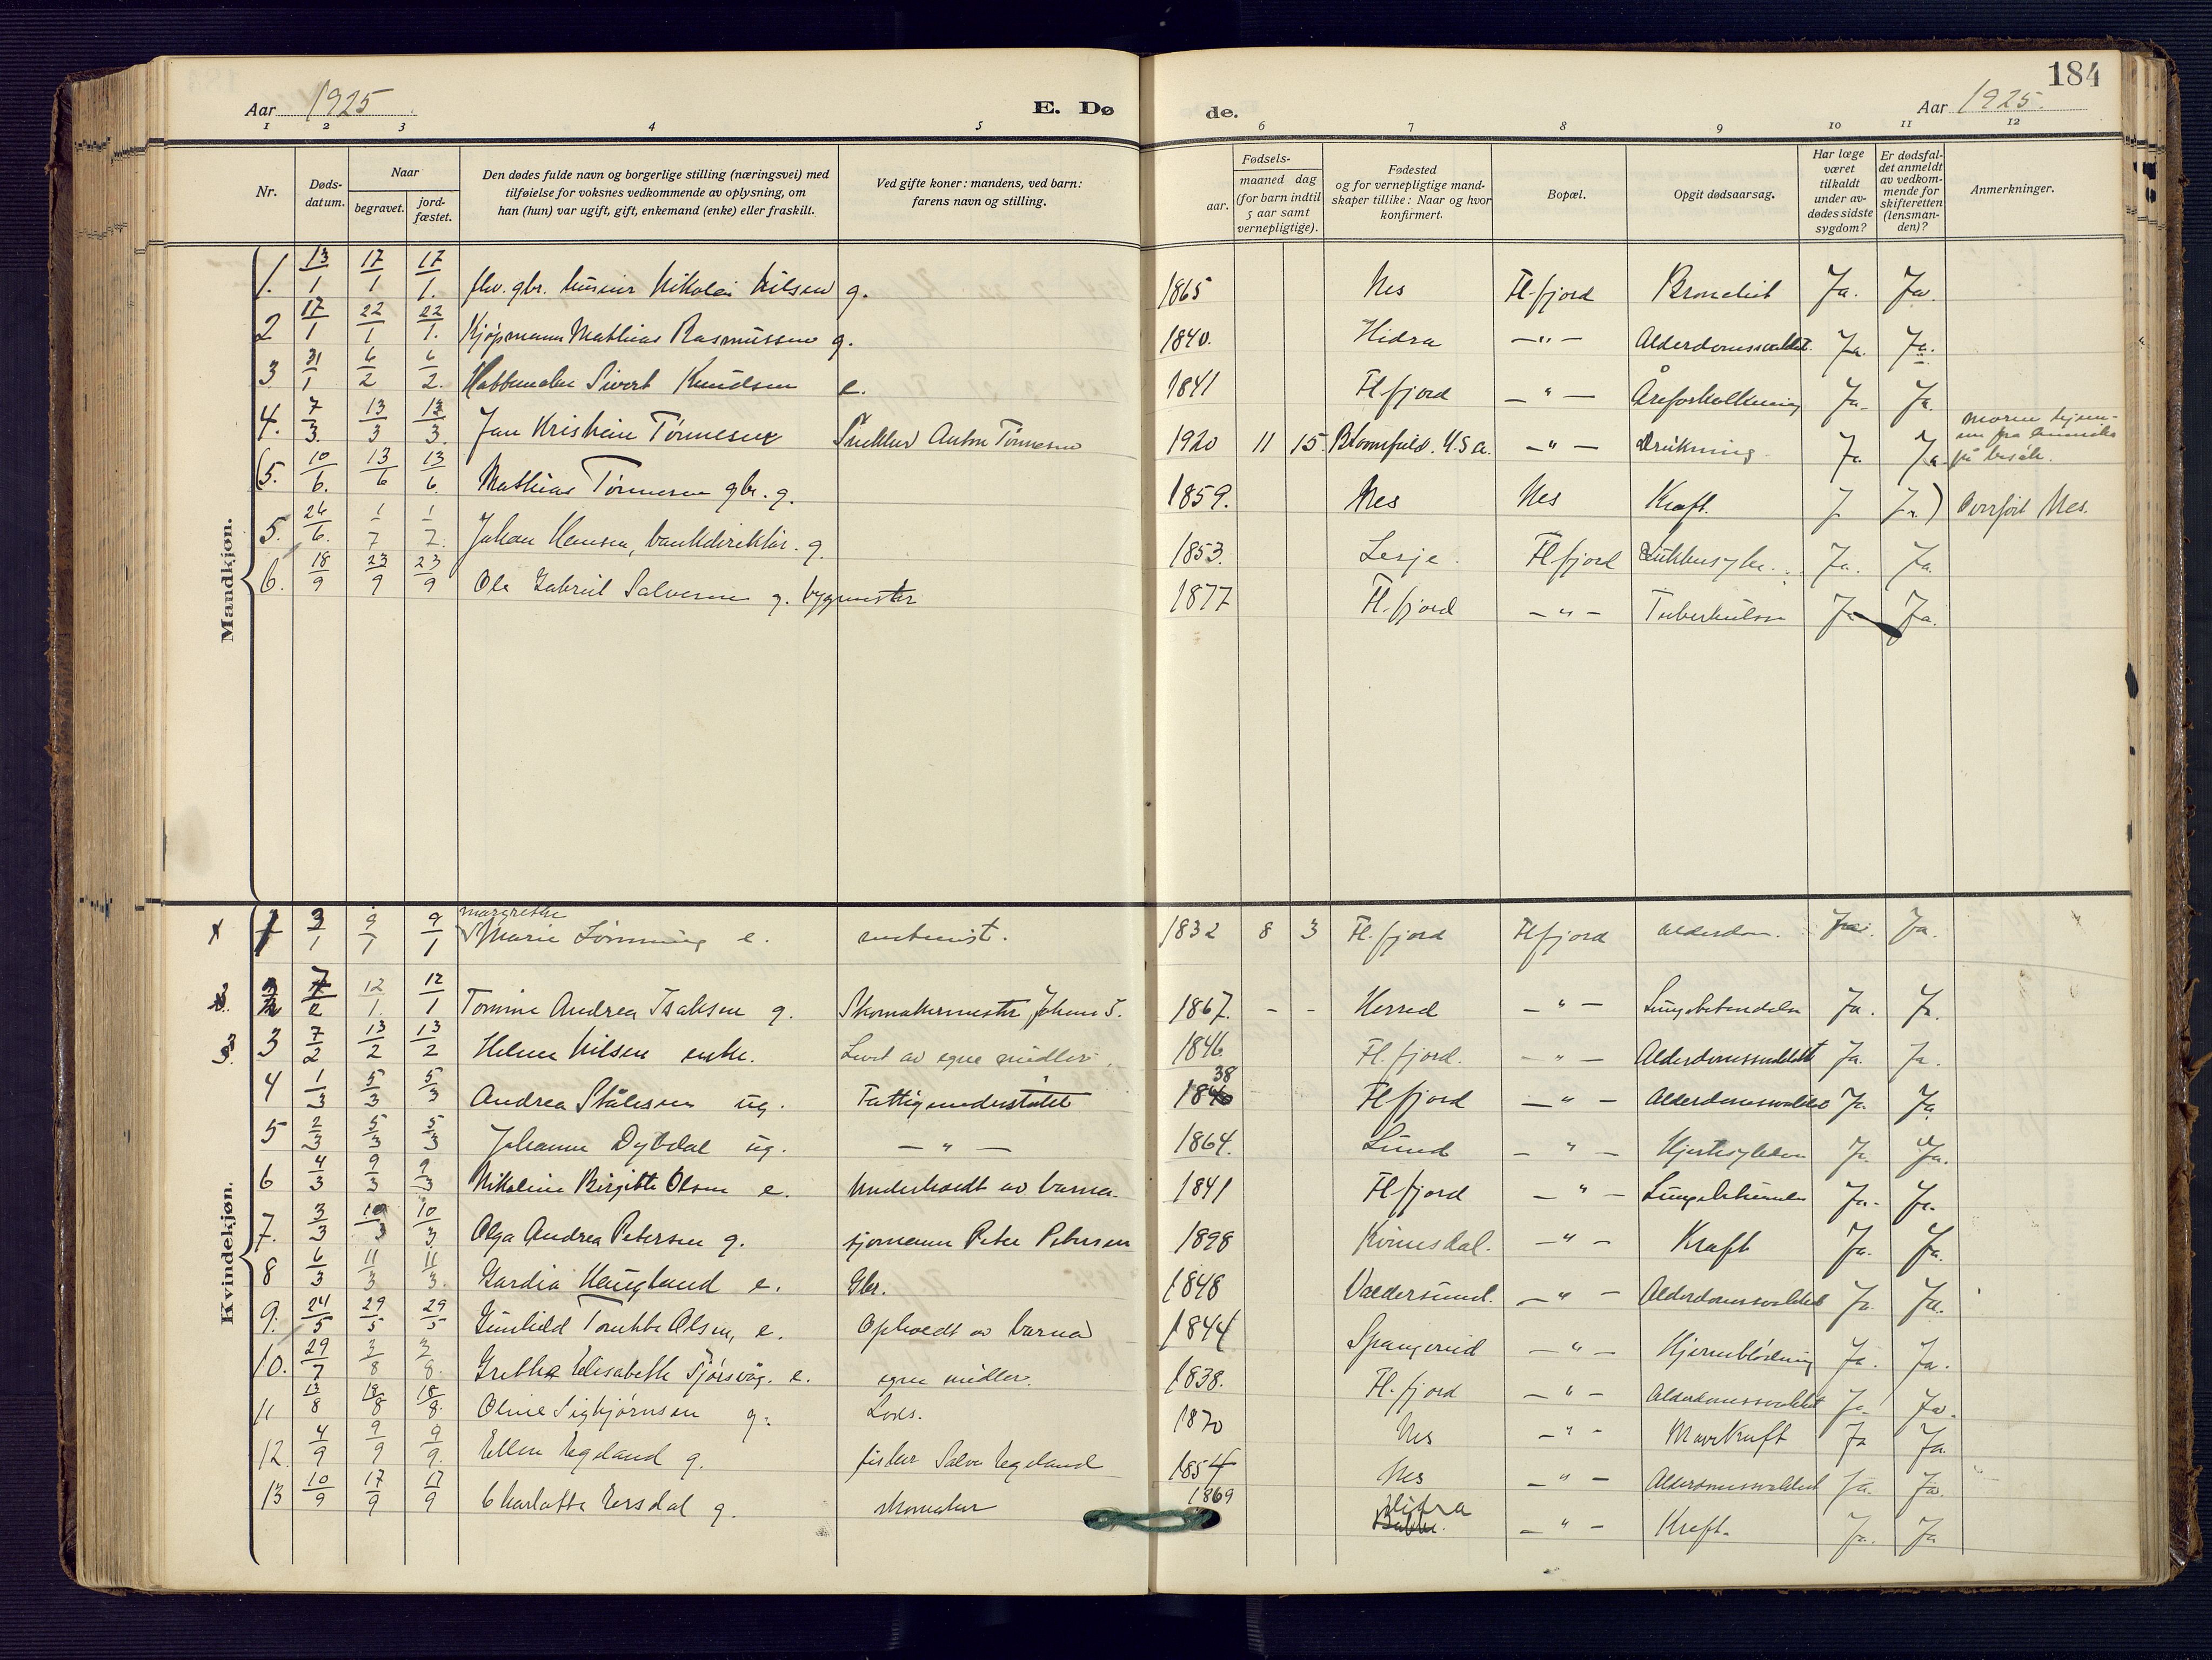 184
Aar 1925
E. Dø
de.
Aar 1925.
1 2 3 4 5 6 7 8 9 10 11 12
Nr.
Døds-
datum.
Naar
begravet.
jord-
fæstet.
Den dødes fulde navn og borgerlige stilling (næringsvei) med
tilføielse for voksnes vedkommende av oplysning, om
han (hun) var ugift, gift, enkemand (enke) eller fraskilt.
Ved gifte koner: mandens, ved barn:
farens navn og stilling.
Fødsels-
aar.
maaned dag
(for barn indtil
5 aar samt
vernepligtige).
Fødested
og for vernepligtige mand-
skaper tillike: Naar og hvor
konfirmert.
Bopæl.
Opgit dødsaarsag.
Har læge
været
tilkaldt
under av-
dødes sidste
sygdom?
Er dødsfal-
det anmeldt
av vedkom-
mende for
skifteretten
(lensman-
den)?
Anmerkninger.
Mandkjøn.
1. 13/1 17/1 17/1. fhv. gbr. Nikolai Nilsen g. 1865 Nes Fl.fjord Ja. Ja.
2 17/1 22/1 22/1. Kjøpmann Mathias Rasmussen g. 1840. Hidra —"— Ja. Ja.
3 31/1 6/2 6/2. Sivert Knudsen e. 1841 Fl fjord —"— Åreforkalkning Ja. Ja.
4. 7/3. 13/3 13/3. Jan Tønnesen Anton Tønnesen 1920 11 15. U.S.A. —"— Drukning Ja Ja
(5. 10/6. 13/6 13/6. Mathias Tønnesen gbr. g. 1859. Nes Nes Kræft. Ja Ja) Overført Nes.
5. 26/6. 1/7 1/7. Johan Hansen, bankdirektør. g. 1853. Lesje. Fl fjord Ja. Ja.
6. 18/9 23/9 23/9 Ole Gabriel Salvesen g. bygmester 1877 Fl.fjord —"— Tuberkulose Ja Ja.
Kvindekjøn.
1 3/1 9/1 9/1 Margrethe
Marie Lønning e. 1832 8 3 Fl. fjord Fl fjord alderdom. Ja.
2 12/1. 12/1 Tomine Andrea Isaksen g. Skomakermester Johans I. 1867. - - Herred —"— Lungebetendelse Ja. Ja.
3 7/2 13/2 13/2 Helene Nilsen enke. Levet av egne midler. 1846. Fl. fjord. —"— Ja. Ja.
4 1/3 5/3 5/3 Andrea Stålesen ug. Fattigunderstøttet 1838 Fl fjord —"— Ja. Ja
5 2/3 5/3 5/3 Johanne Dybdal ug. —"— 1864. Lund —"— Hjertesykdom Ja. Ja.
6 4/3 9/3 9/3 Nikoline Birgitte Olsen e. Underholdt av barna. 1841 Fl fjord —"— Ja. Ja.
7. 3/3 10/3 10/3 Olga Andrea Petersen g. sjømann Peter Petersen 1898 Kvinesdal. —"— Kræft Ja. Ja.
8 6/3 11/3 11/3. Gardia Haugland e. Gbr. 1848 Valdersund. —"— Ja. Ja.
9. 24/5 29/5 29/5 Gunhild Olsen, e. Opholdt av barna 1844 Spangereid —"— Hjerneblødning Ja. Ja.
10. 29/7 3/8 3/8. Grethe Elisabeth e. egne midler. 1838. Fl. fjord —"— Ja. Ja.
11 13/8 18/8 18/8. Oline Sigbjørnsen g. Lods. 1870 Nes —"— Mavekræft Ja Ja.
12. 4/9 9/9 9/9. Ellen Egeland g. fisker Salve Egeland 1854 Nes —"— Ja. Ja.
13 10/9 17/9 17/9 Charlotte Ersdal g. skomaker 1869 Hidra —"— Kræft. Ja. Ja